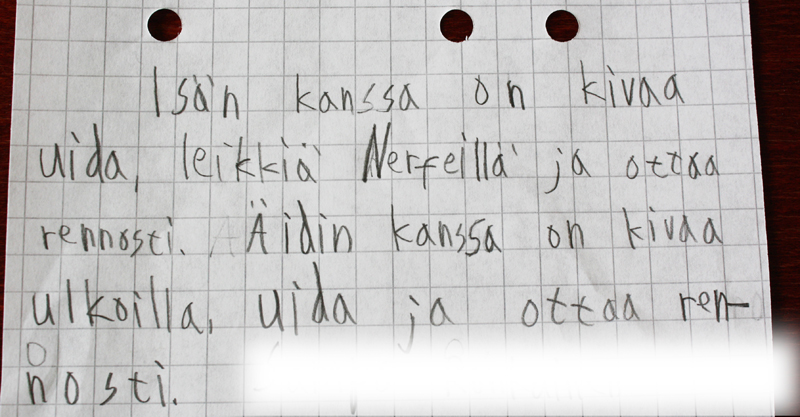 Isän kanssa on kivaa
uida, leikkiä Nerfeillä ja ottaa
rennosti. Äidin kanssa on kivaa
ulkoilla, uida ja ottaa ren-
nosti.